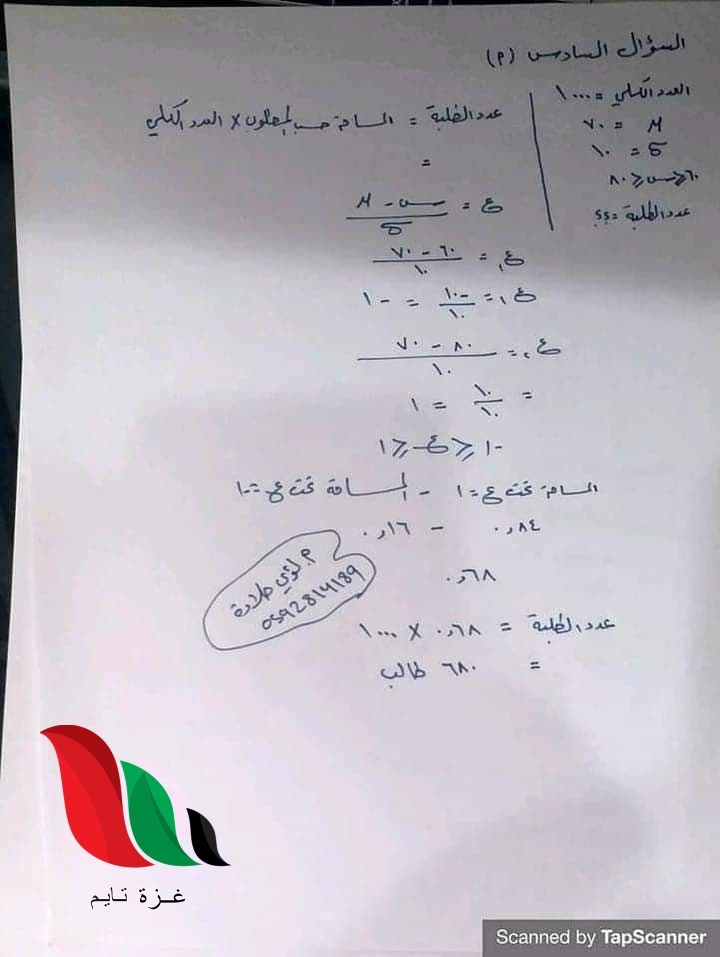 السؤال السادس (م)
العدد الكلي = ١٠٠٠
μ = ٧٠
σ = ١٠
٦٠ ≤ س ≤ ٨٠
عدد الطلبة = ؟؟
عدد الطلبة = المساحة حسب المطلوب × العدد الكلي
=
ع = س - μ / σ
ع١ = ٦٠ - ٧٠ / ١٠
ع١ = -١٠ / ١٠ = -١
ع٢ = ٨٠ - ٧٠ / ١٠
= ١٠ / ١٠ = ١
-١ ≤ ع ≤ ١
المساحة تحت ع = ١ - المساحة تحت ع = -١
٠,٨٤ - ٠,١٦
٠,٦٨
عدد الطلبة = ٠,٦٨ × ١٠٠٠
= ٦٨٠ طالب
م. لؤي حلاوة
0592814189
غزة تايم
Scanned by TapScanner